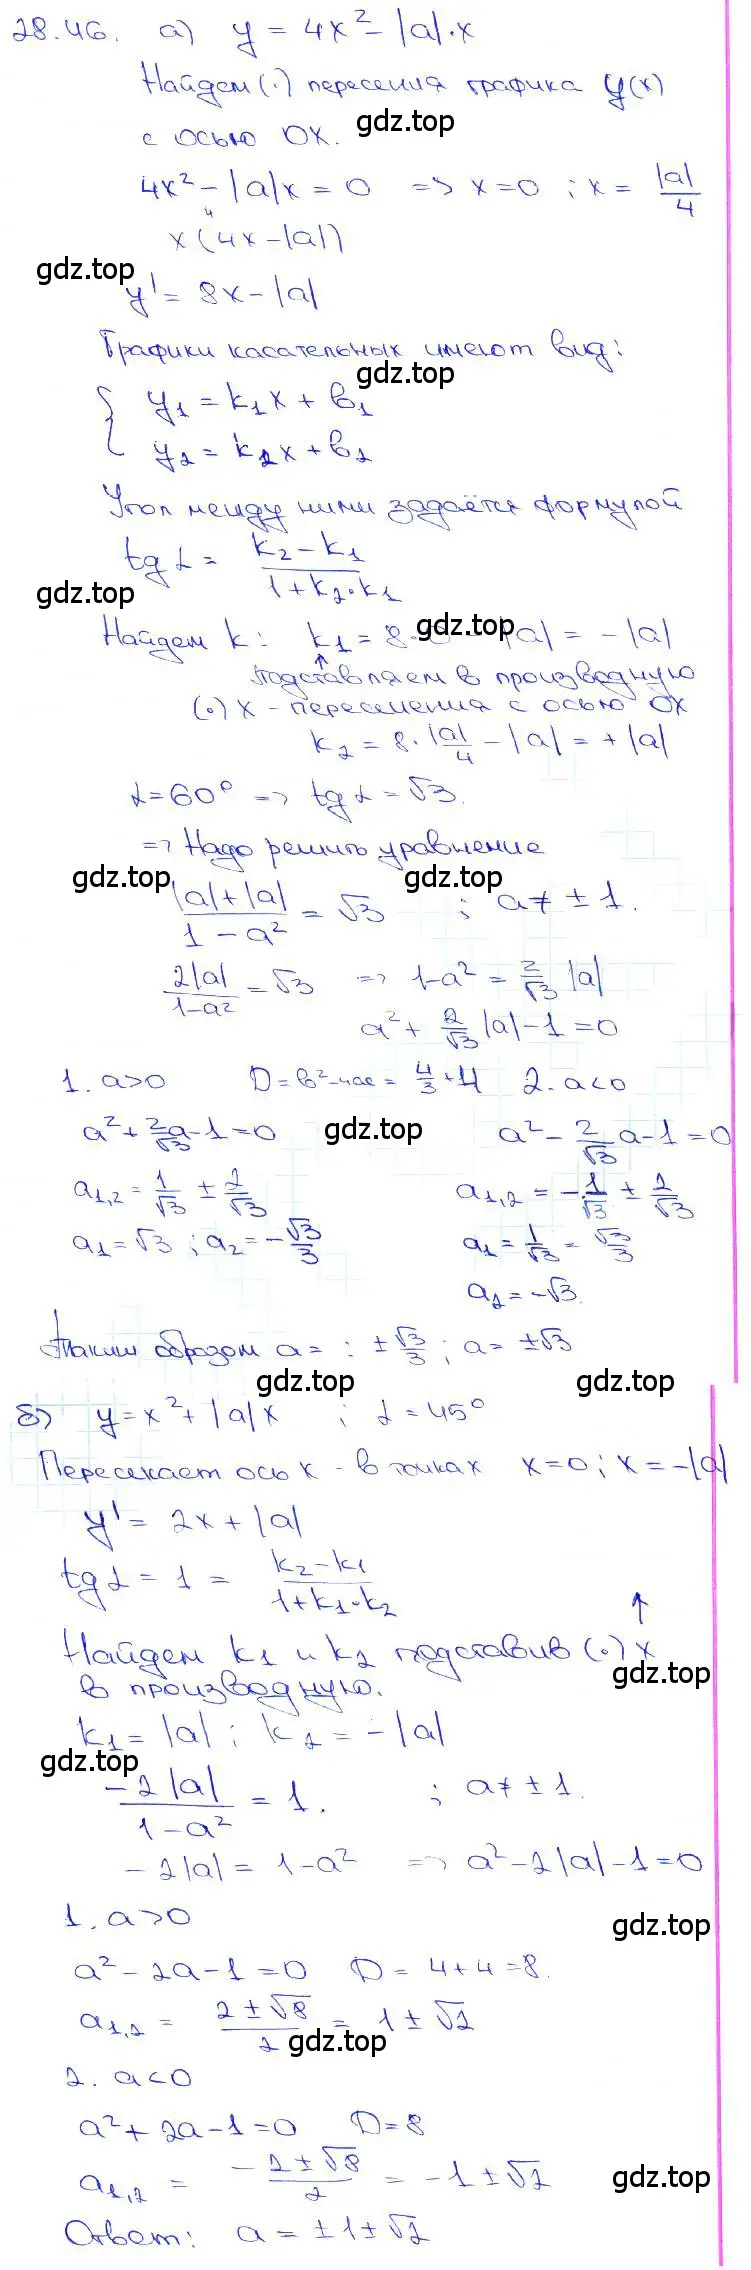 28.46. а) y = 4x² - |a|·x
Найдем (·) пересения графика y(x)
gdz.top
с осью OX.
4x² - |a|x = 0 => x = 0 ; x = |a|/4
x(4x - |a|)
gdz.top
y' = 8x - |a|
Графики касательных имеют вид:
gdz.top
{ y₁ = k₁x + b₁
y₂ = k₂x + b₂
Угол между ними задаётся формулой
tg α = (k₂ - k₁)/(1 + k₂·k₁)
gdz.top
Найдем k: k₁ = 8·0 - |a| = -|a|
gdz.top
↑ подставляем в производную
(·) x - пересечения с осью OX
k₂ = 8·|a|/4 - |a| = +|a|
α = 60° => tg α = √3.
=> Надо решить уравнение
gdz.top gdz.top
(|a| + |a|)/(1 - a²) = √3 ; a ≠ ± 1.
2|a|/(1-a²) = √3 => 1-a² = 2/√3 |a|
a² + 2/√3 |a| - 1 = 0
1. a>0 D = b²-4ac = 4/3 + 4 2. a<0
a² + 2/√3 a - 1 = 0 gdz.top a² - 2/√3 a - 1 = 0
a₁,₂ = 1/√3 ± 2/√3 a₁,₂ = -1/√3 ± 2/√3
a₁ = √3 ; a₂ = -√3/3 a₁ = 1/√3 = √3/3
a₂ = -√3.
Таким образом a = : ± √3/3 ; a = ±√3
gdz.top gdz.top
б) y = x² + |a|x ; α = 45°
Пересекает ось x - в точках x = 0 ; x = -|a|
y' = 2x + |a|
tg α = 1 = (k₂ - k₁)/(1 + k₁·k₂)
↑
Найдем k₁ и k₂ подставив (·) x
gdz.top
в производную.
k₁ = |a| ; k₂ = -|a|
gdz.top
-2|a|/(1 - a²) = 1. ; a ≠ ± 1.
-2|a| = 1 - a² => a² - 2|a| - 1 = 0
1. a>0
gdz.top
a² - 2a - 1 = 0 D = 4 + 4 = 8.
a₁,₂ = (2 ± √8)/2 = 1 ± √2
gdz.top
2. a<0
a² + 2a - 1 = 0 D = 8
a₁,₂ = -(2 ± √8)/2 = -1 ± √2
gdz.top
Ответ: a = ± 1 ± √2